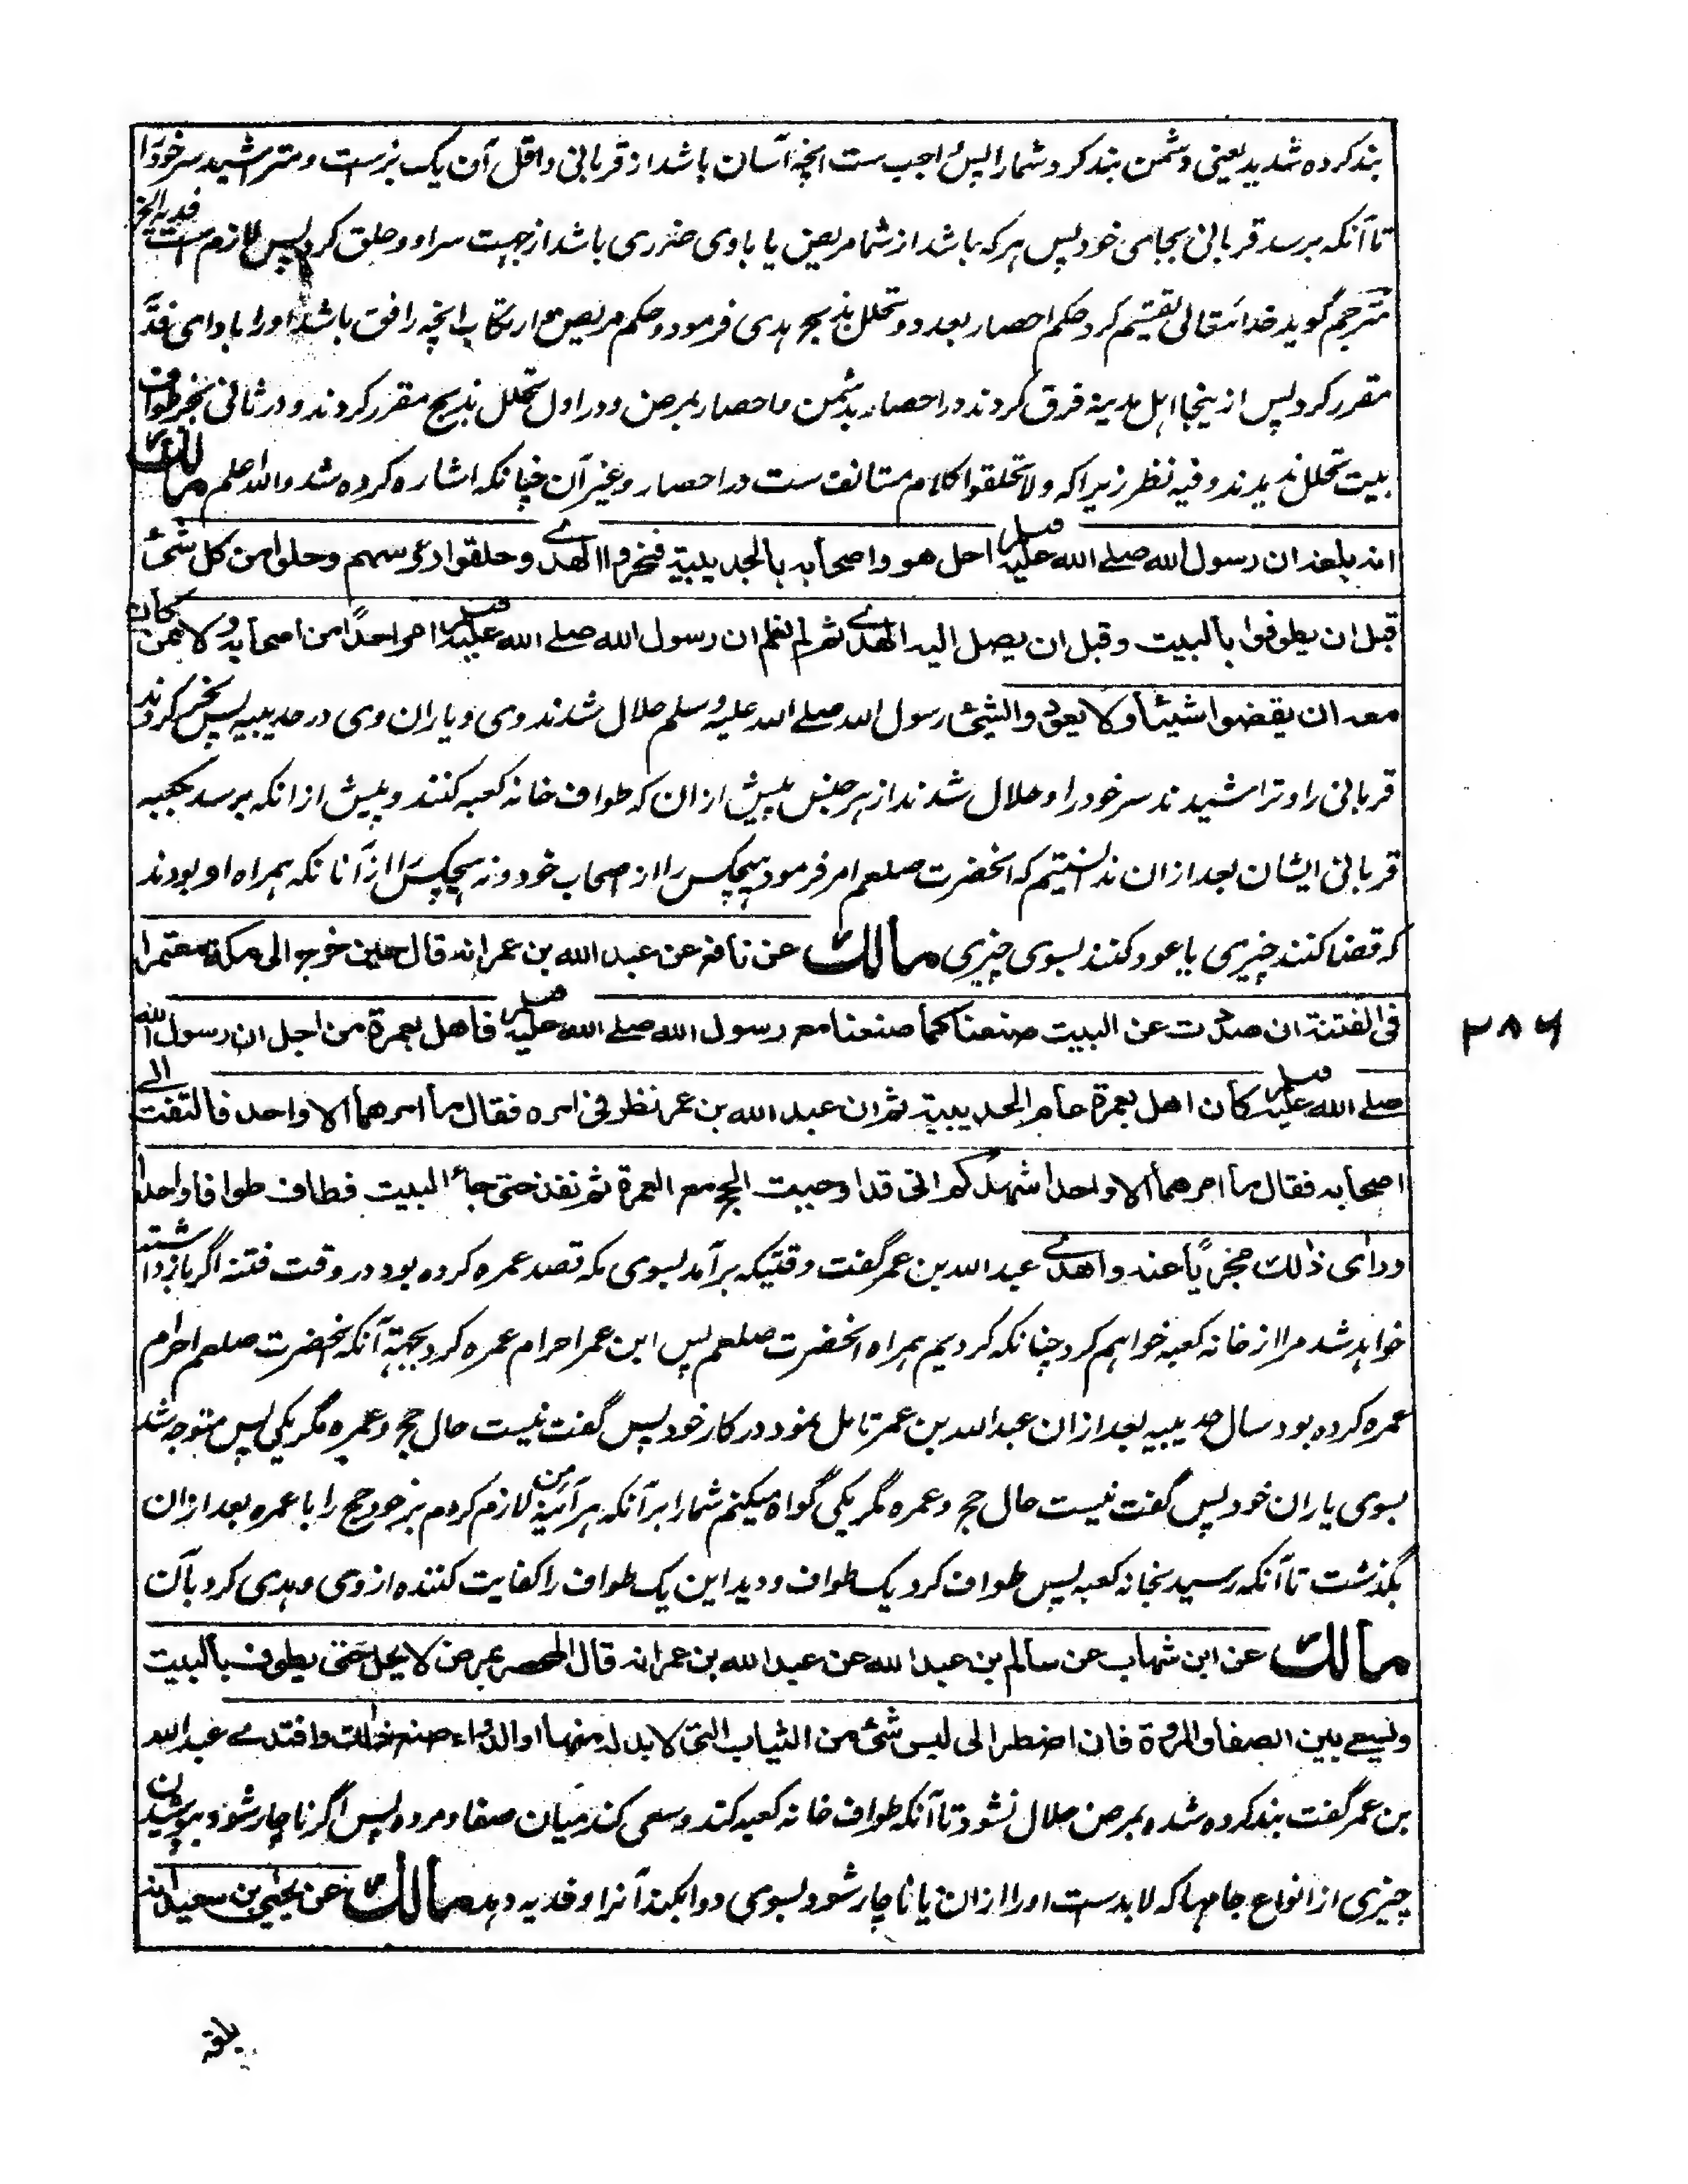 بند کرده شدید یعنی دشمن بند کرد شما را پس واجب ست انچه آسان باشد از قربانی و اقل آن یک بز ست و متراشید سر خود را
تا آنکه برسد قربانی بجای خود پس هر که باشد از شما مریض یا باوی ضرری باشد از جهت سر او و حلق کرد پس لازم ست فدیه الخ
مترجم گوید خدا تعالی تقسیم کرد حکم احصار بعدو و تحلل بذبح هدی فرمود و حکم مریض مع ارتکاب انچه رافق باشد او را بادای
مقرر کرد پس از ینجا اهل مدینه فرق کردند در احصار بدشمن و احصار بمرض و در اول تحلل بذبح مقرر کردند و در ثانی بجز طواف
بیت تحلل ندیدند و فیه نظر زیرا که ولا تحلقوا کلام مستانف ست در احصار و غیر آن چنانکه اشاره کرده شد والله اعلم مالك
انه بلغه ان رسول الله صلے الله علیه وسلم احل هو واصحابه بالحدیبیة فنحروا الهدے وحلقوا رؤسهم وحلوا من کل شئ
قبل ان یطوفوا بالبیت وقبل ان یصل الیه الهدے ثم لم نعلم ان رسول الله صلے الله علیه وسلم امر احدًا من اصحابه ولا ممن کان
معه ان یقضوا شیئا ولا یعودوا لشئ رسول الله صلے الله علیه وسلم حلال شدند وی و یاران وی در حدیبیه پس نحر کردند
قربانی را و تراشیدند سر خود را و حلال شدند از هر جنس پیش ازان که طواف خانه کعبه کنند و پیش از انکه برسد بکعبه
قربانی ایشان بعد ازان ندانستیم که انحضرت صلعم امر فرمود هیچکس را از اصحاب خود و نه هیچکس را از آنانکه همراه او بودند
که قضا کنند چیزی یا عود کنند بسوی چیزی مالك عن نافع عن عبد الله بن عمر انه قال حین خرج الی مکة معتمرا
فی الفتنة ان صددت عن البیت صنعنا کما صنعنا مع رسول الله صلے الله علیه وسلم فاهل بعمرة من اجل ان رسول الله
صلے الله علیه وسلم کان اهل بعمرة عام الحدیبیة ثم ان عبد الله بن عمر نظر فی امره فقال ما امرهما الا واحد فالتفت الے
اصحابه فقال ما امرهما الا واحد اشهدکم انی قد اوجبت الحج مع العمرة ثم نفذ حتی جاء البیت فطاف طوافا واحدا
ورای ذلك مجزیًا عنه واهدے عبد الله بن عمر گفت وقتیکه برآمد بسوی مکه قصد عمره کرده بود در وقت فتنه اگر باز داشته
خواهد شد مرا از خانه کعبه خواهم کرد چنانکه کردیم همراه انحضرت صلعم پس ابن عمر احرام عمره کرد بجهة آنکه انحضرت صلعم احرام
عمره کرده بود سال حدیبیه بعد ازان عبد الله بن عمر تامل نمود در کار خود پس گفت نیست حال حج و عمره مگر یکی پس متوجه شد
بسوی یاران خود پس گفت نیست حال حج و عمره مگر یکی گواه میکنم شما را برآنکه هر آئینه من لازم کردم بر خود حج را با عمره بعد ازان
بگذشت تا آنکه رسید بخانه کعبه پس طواف کرد یک طواف و دید این یک طواف را کفایت کننده از وی و هدی کرد بآن
مالك عن ابن شهاب عن سالم بن عبد الله عن عبد الله بن عمر انه قال المحصر بمرض لا یحل حتی یطوف بالبیت
ویسعے بین الصفا والمروة فان اضطر الی لبس شئ من الثیاب التی لا بد له منها او الدواء صنع ذلك وافتدے عبد الله
بن عمر گفت بند کرده شده بمرض حلال نشود تا آنکه طواف خانه کعبه کند و سعی کند میان صفا و مروه پس اگر ناچار شود بپوشیدن
چیزی از انواع جامها که لابد ست او را ازان یا ناچار شود بسوی دوا بکند آنرا و فدیه دهد مالك عن یحیی بن سعید انه
۲۸۶
بلغه